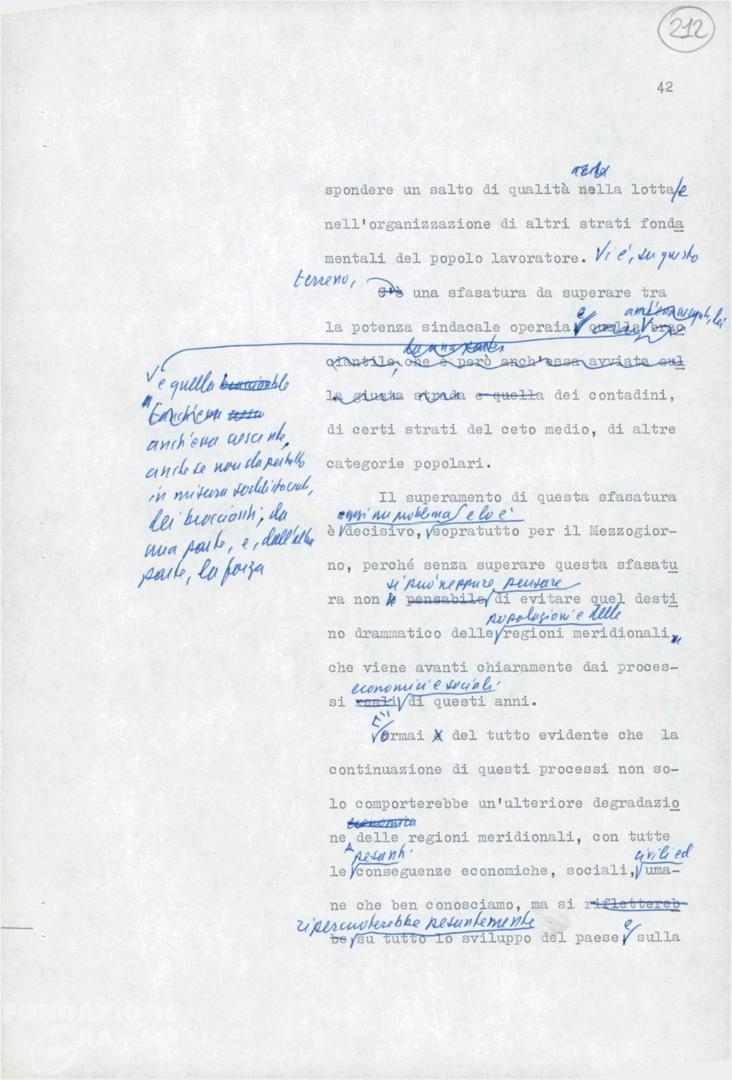 212
42
spondere un salto di qualità nella lotta e
nell'organizzazione di altri strati fonda
mentali del popolo lavoratore. Vi è, su questo
terreno,
C'è una sfasatura da superare tra
la potenza sindacale operaia e quella brac
ciantile, che è però anch'essa avviata sul
la giusta strada e quella dei contadini,
di certi strati del ceto medio, di altre
categorie popolari.
e quella
anch'essa crescente,
anche se non dapertutto
in misura soddisfacente,
dei braccianti, da
una parte, e, dall'altra
parte, la forza
Il superamento di questa sfasatura
oggi un problema e lo è
è decisivo, sopratutto per il Mezzogior-
no, perché senza superare questa sfasatu
si può neppure pensare
ra non è pensabile di evitare quel desti
popolazioni e delle
no drammatico delle regioni meridionali
che viene avanti chiaramente dai proces-
economici e sociali
si reali di questi anni.
E'
Ormai è del tutto evidente che la
continuazione di questi processi non so-
lo comporterebbe un'ulteriore degradazio
economica
ne delle regioni meridionali, con tutte
pesanti civili ed
le conseguenze economiche, sociali, uma-
ne che ben conosciamo, ma si riflettereb-
ripercuoterebbe pesantemente
be su tutto lo sviluppo del paese e sulla
FONDAZIONE
GRAMSCI